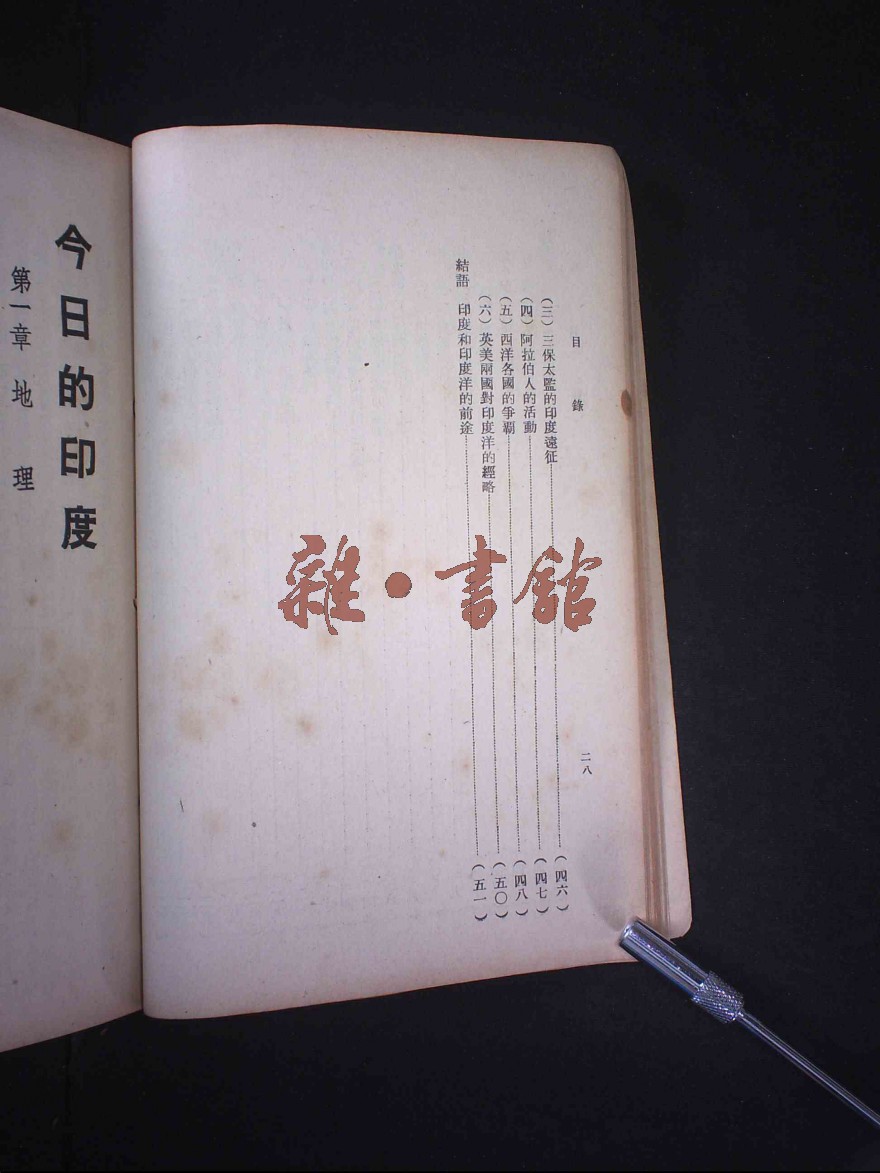 目錄
二八
（三）三保太監的印度遠征（四六）
（四）阿拉伯人的活動（四七）
（五）西洋各國的爭霸（四八）
（六）英美兩國對印度洋的經略（五〇）
結語 印度和印度洋的前途（五一）
今日的印度
第一章 地理
雜・書館